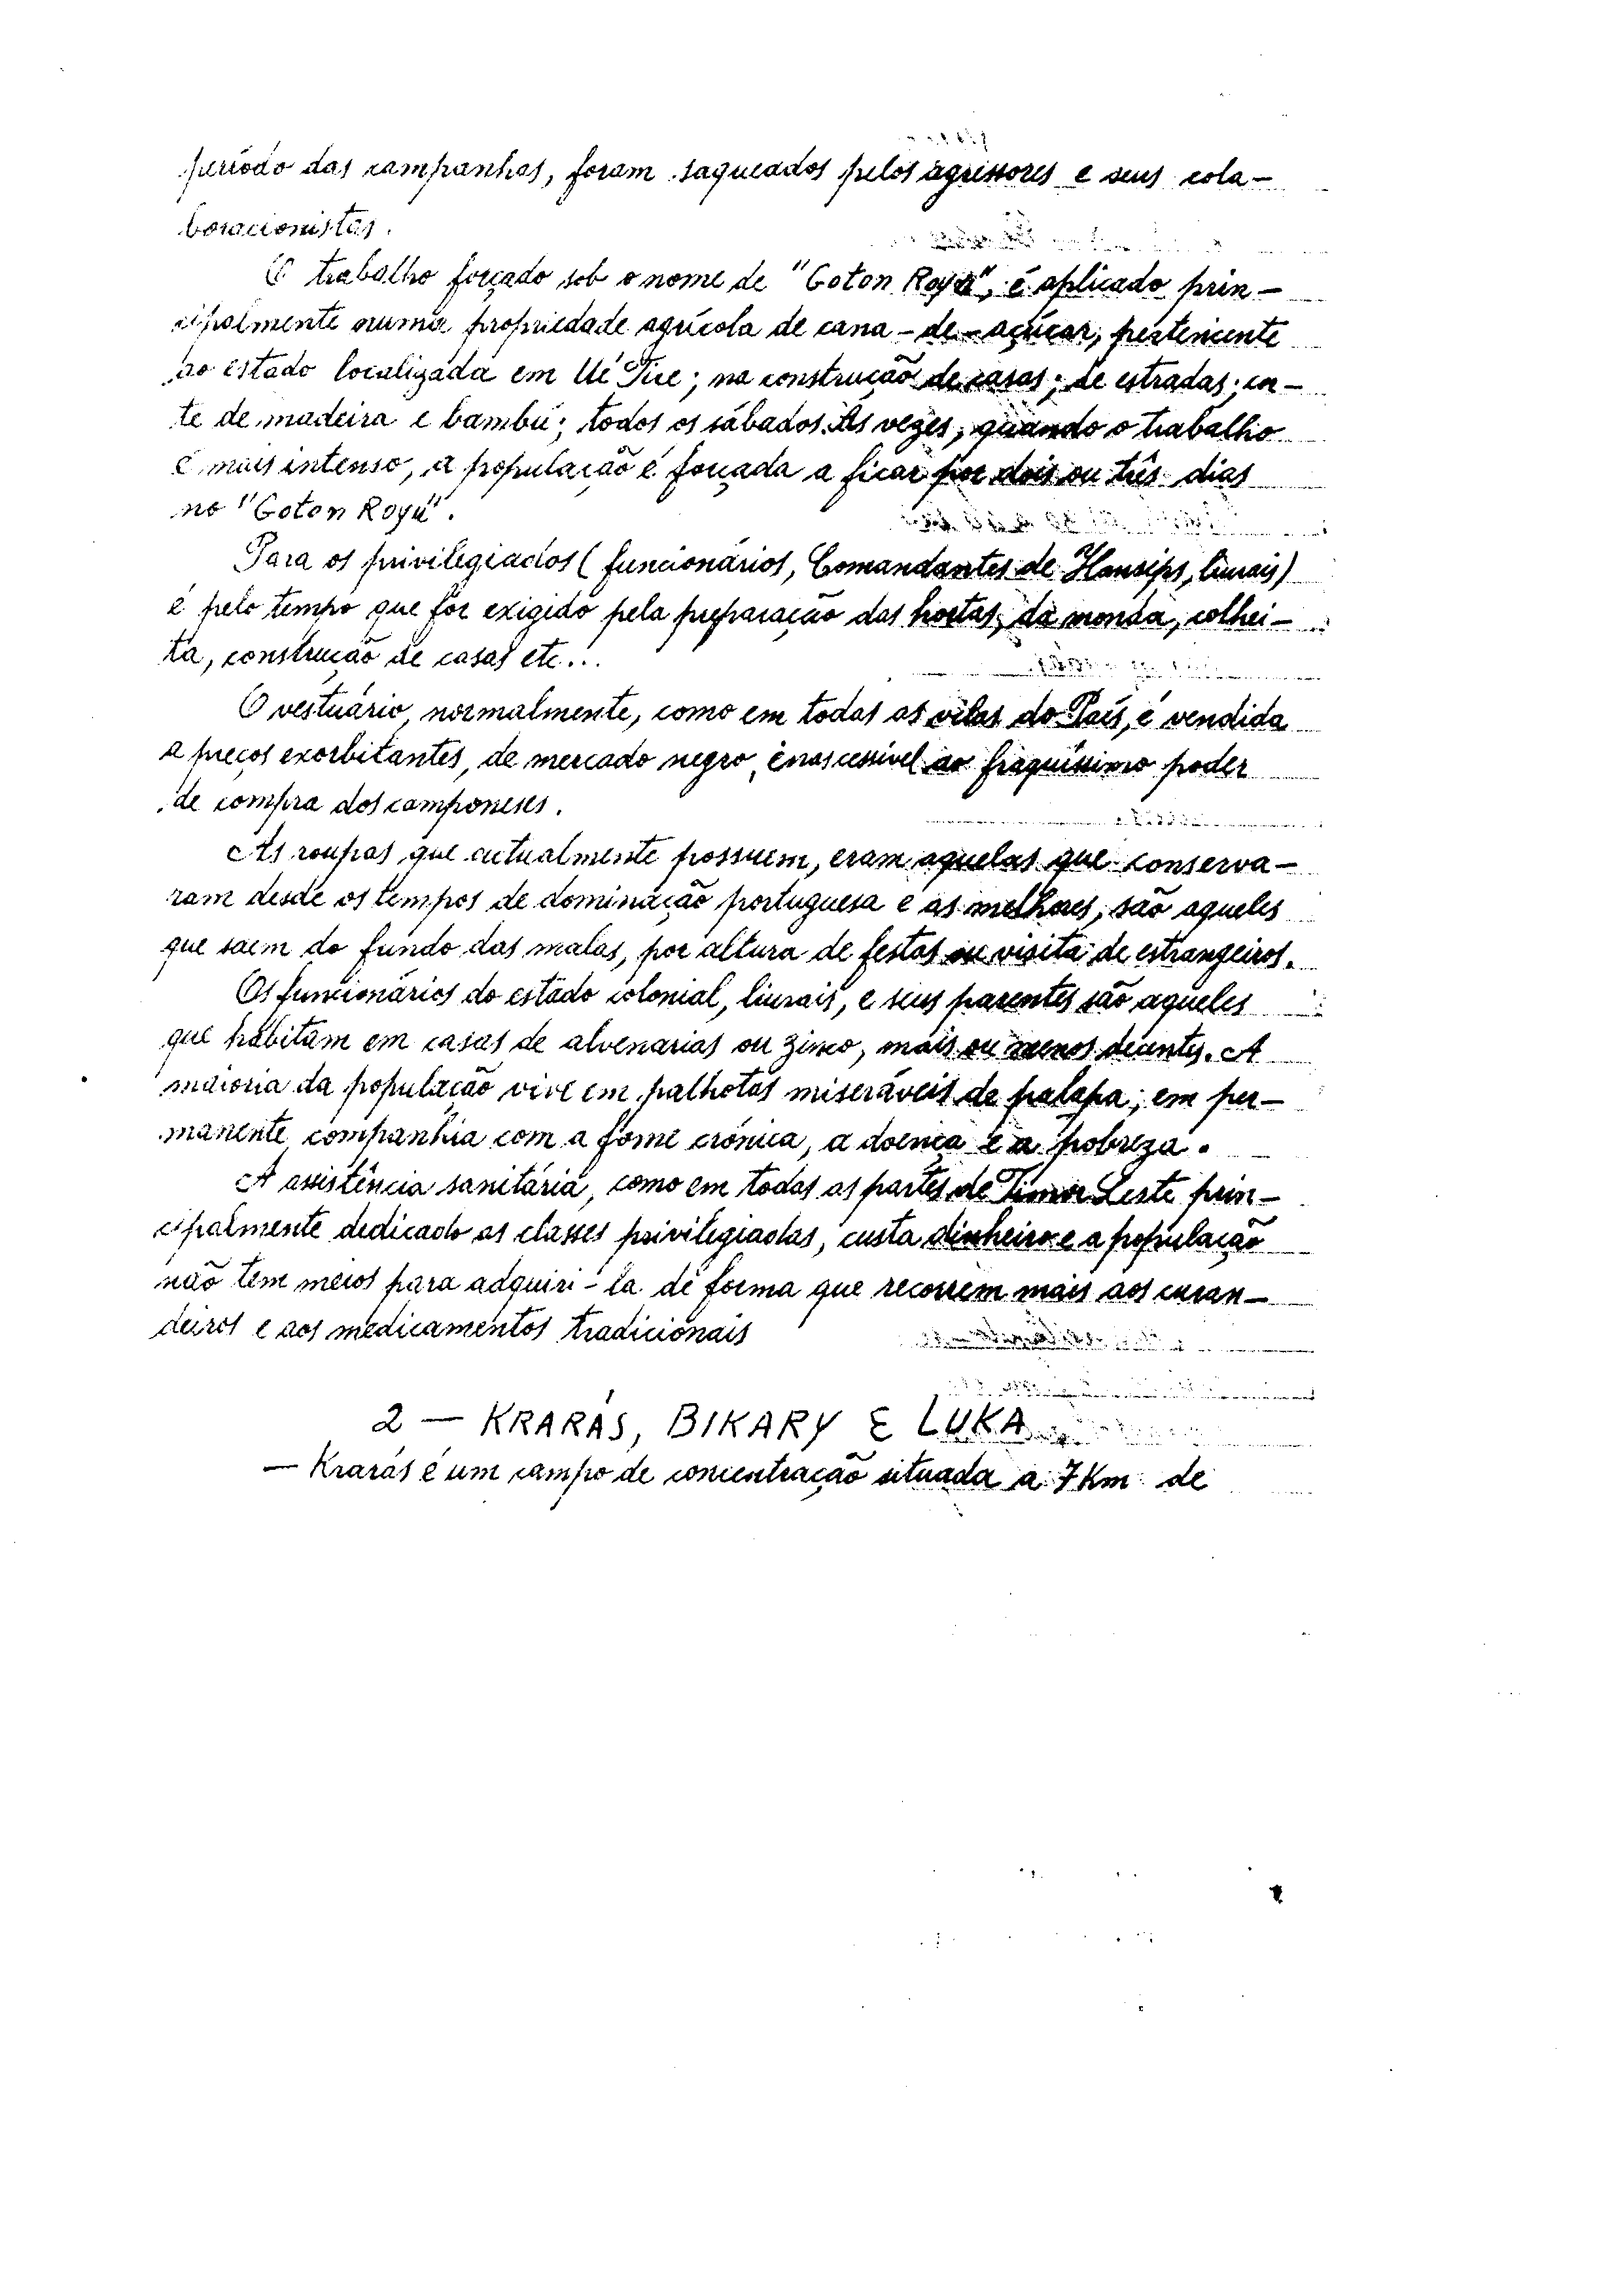 período das campanhas, foram saqueados pelos agressores e seus cola-
boracionistas.
O trabalho forçado sob o nome de "Goton Royú", é aplicado prin-
cipalmente numa propriedade agrícola de cana-de-açúcar, pertencente
ao estado localizada em Ué Tice; na construção de casas; de estradas; cor-
te de madeira e bambú; todos os sábados. Às vezes, quando o trabalho
é mais intenso, a população é forçada a ficar por dois ou três dias
no "Goton Royú".
Para os privilegiados (funcionários, Comandantes de Hansips, liurais)
é pelo tempo que fôr exigido pela preparação das hortas, da monda, colhei-
ta, construção de casas etc...
O vestuário, normalmente, como em todas as vilas do País, é vendida
a preços exorbitantes, de mercado negro, inascessível ao fraquíssimo poder
de compra dos camponeses.
As roupas que actualmente possuem, eram aquelas que conserva-
ram desde os tempos de dominação portuguesa e as melhores, são aqueles
que saem do fundo das malas, por altura de festas ou visita de estrangeiros.
Os funcionários do estado colonial, liurais, e seus parentes são aqueles
que habitam em casas de alvenarias ou zinco, mais ou menos decentes. A
maioria da população vive em palhotas miseráveis de palapa; em per-
manente companhia com a fome crónica, a doença e a pobreza.
A assistência sanitária, como em todas as partes de Timor Leste prin-
cipalmente dedicado as classes privilegiadas, custa dinheiro e a população
não tem meios para adquiri-la de forma que recorrem mais aos curan-
deiros e aos medicamentos tradicionais
2 — KRARÁS, BIKARY E LUKA
— Krarás é um campo de concentração situada a 7 Km de